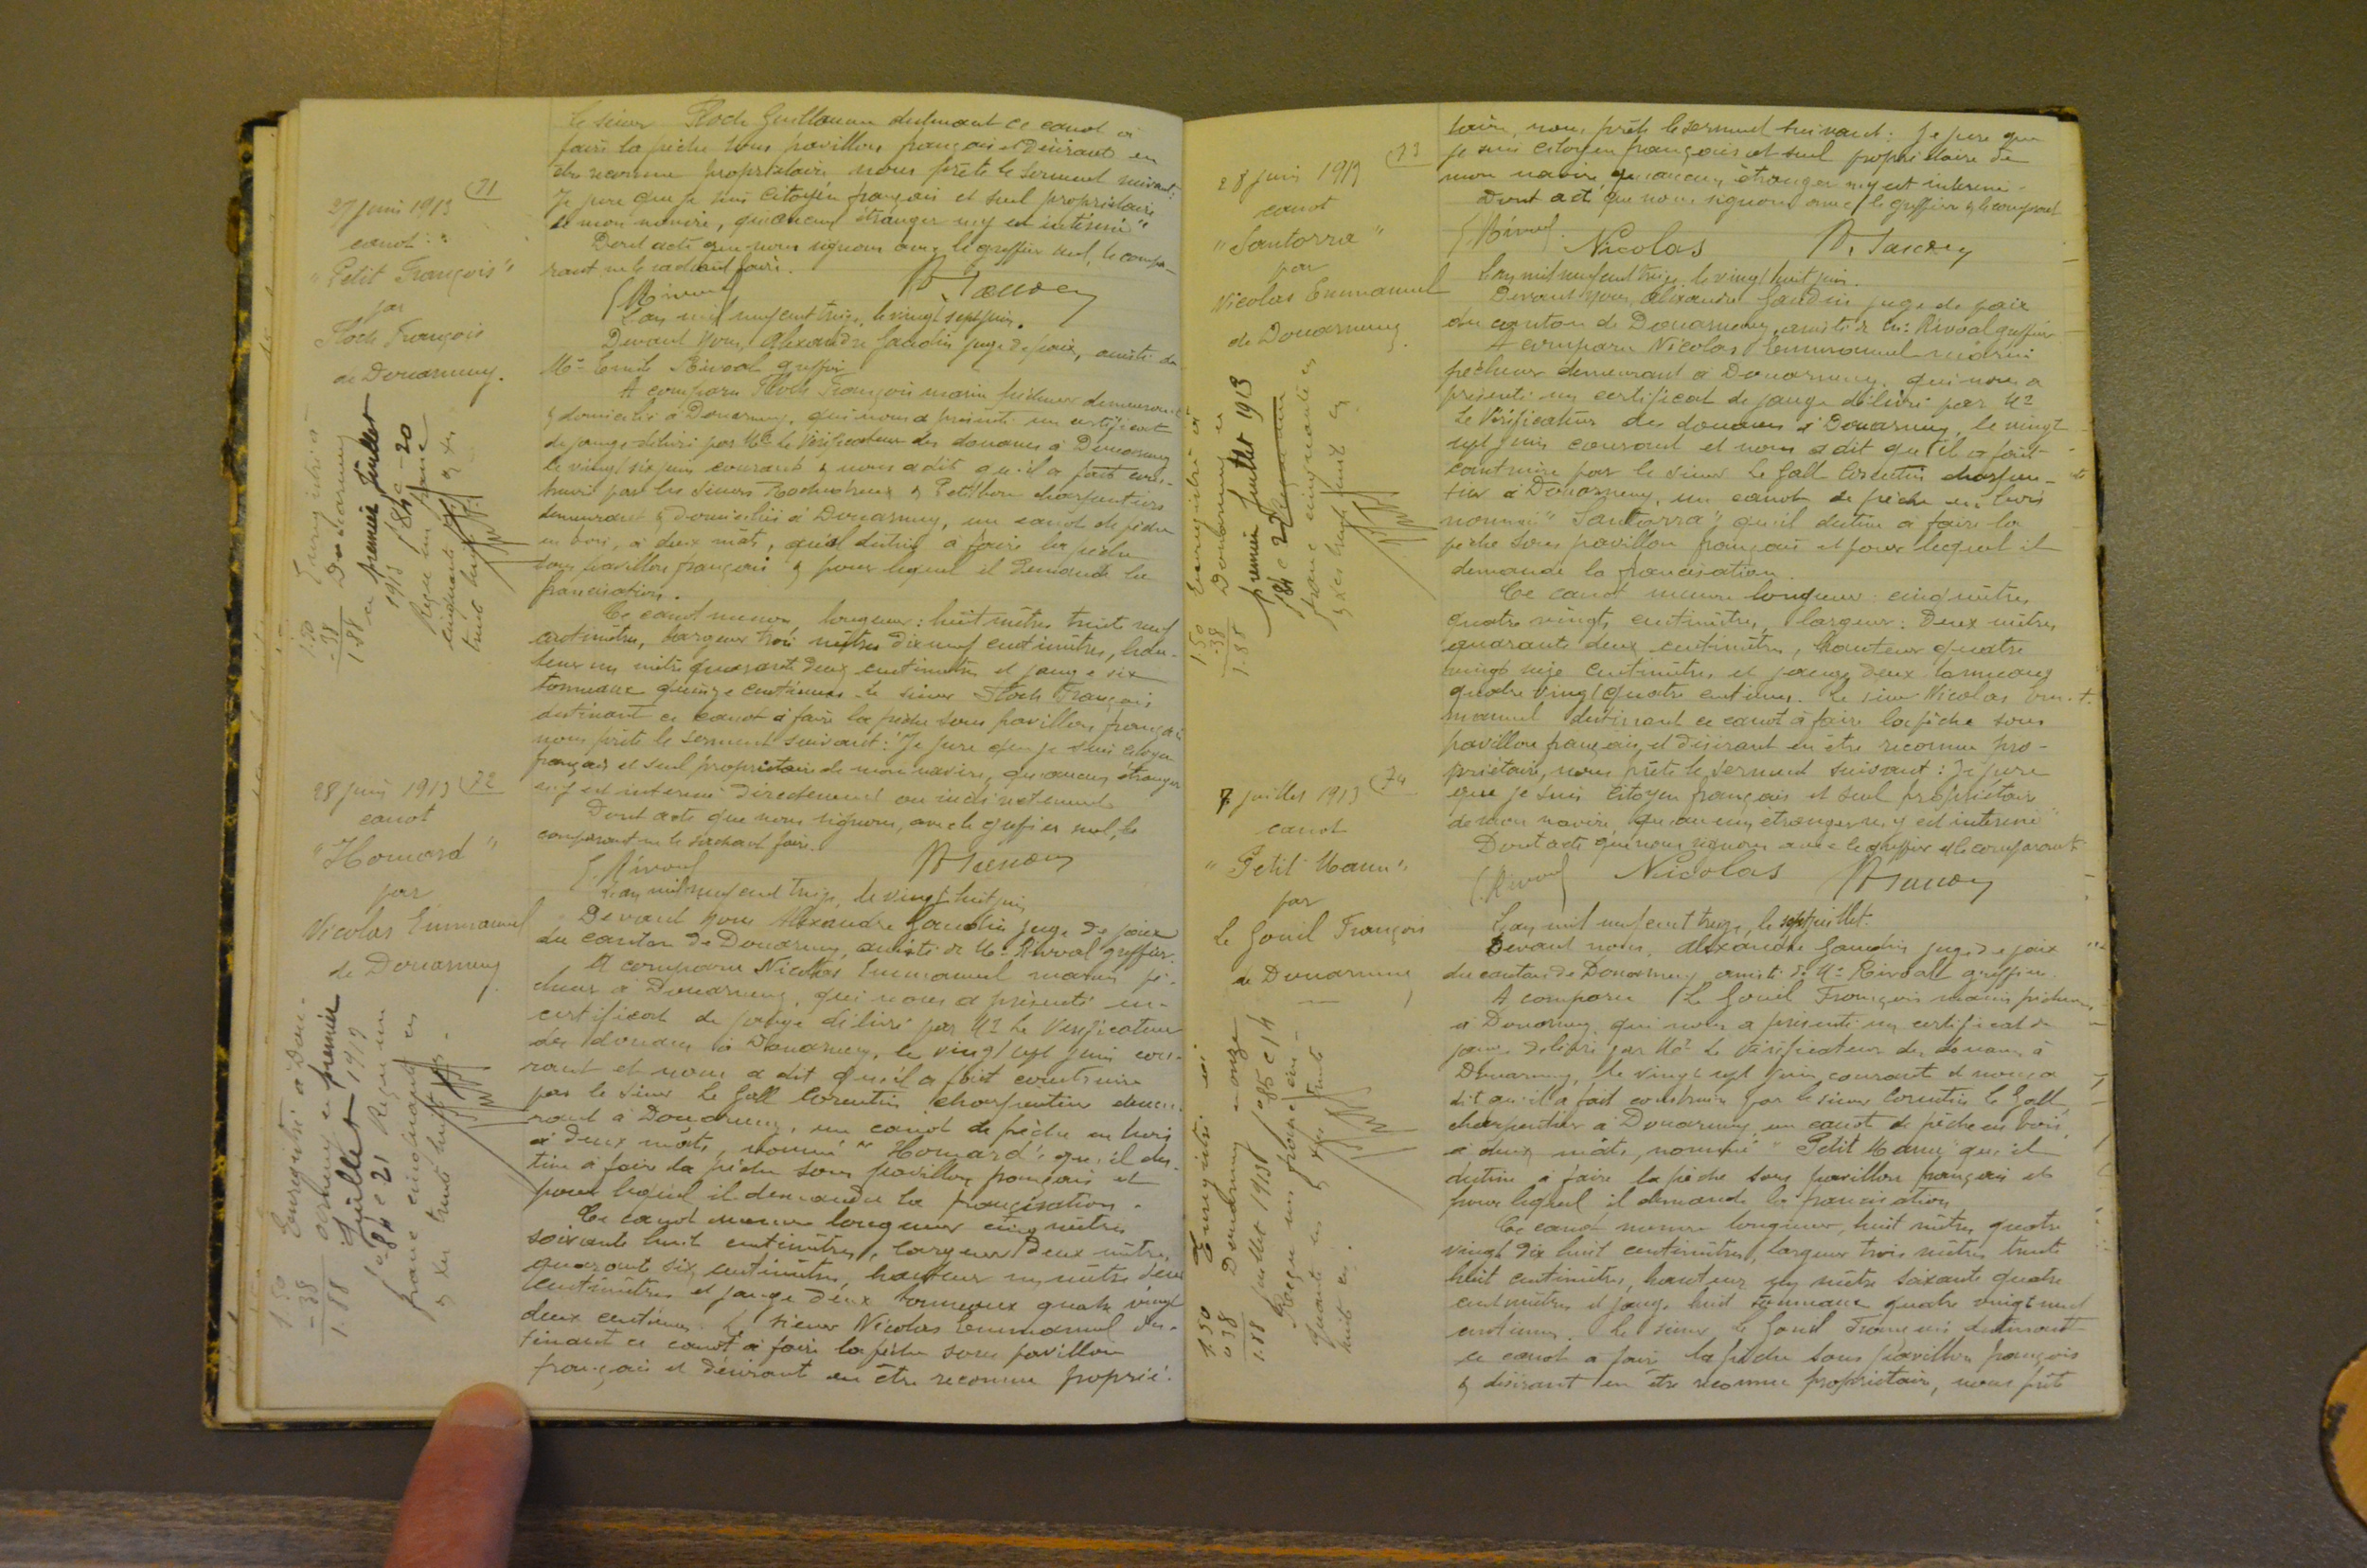 71
27 juin 1913
canot :
"Petit François"
par
Floch François
de Douarnenez.
Enregistré à
Douarnenez
le premier Juillet
1913 f° 84 c 20
Reçu un franc
cinquante c. & xes
trente huit c.
1.50
-38
1.88
72
28 juin 1913
canot
"Homard"
par
Nicolas Emmanuel
de Douarnenez
Enregistré à Dou-
arnenez le premier
Juillet 1913
f° 84 c 21 Reçu un
franc cinquante c
& xes trente huit c.
1.50
-38
1.88
Le sieur Floch Guillaume destinant ce canot à
faire la pêche sous pavillon français et désirant en
être reconnu propriétaire nous prête le serment suivant :
Je jure que je suis citoyen français et seul propriétaire
de mon navire, qu'aucun étranger n'y est intéressé"
Dont acte que nous signons avec le greffier seul, le compa-
rant ne le sachant faire.
E. Rivoal
L'an mil neuf cent treize, le vingt sept juin.
Devant Nous, Alexandre Gaudin juge de paix, assisté de
Me Emile Rivoal greffier
A comparu Floch François marin pêcheur demeurant
& domicilié à Douarnenez, qui nous a présenté un certificat
de jauge délivré par Mr le Vérificateur des douanes à Douarnenez
le vingt six juin courant & nous a dit qu'il a fait cons-
truire par les sieurs & Petitbon charpentiers
demeurant & domiciliés à Douarnenez, un canot de pêche
en bois, à deux mâts, qu'il destine à faire la pêche
sous pavillon français & pour lequel il demande la
francisation.
Ce canot mesure longueur : huit mètres trente neuf
centimètres, largeur trois mètres dix neuf centimètres, hau-
teur un mètre quarante deux centimètres et jauge six
tonneaux quinze centièmes. Le sieur Floch François
destinant ce canot à faire la pêche sous pavillon français
nous prête le serment suivant : "Je jure que je suis citoyen
français et seul propriétaire de mon navire, qu'aucun étranger
n'y est intéressé directement ou indirectement.
Dont acte que nous signons, avec le greffier seul, le
comparant ne le sachant faire.
E. Rivoal
L'an mil neuf cent treize, le vingt huit juin
Devant Nous Alexandre Gaudin juge de paix
du canton de Douarnenez, assisté de Me Rivoal greffier.
A comparu Nicolas Emmanuel marin pê-
cheur à Douarnenez, qui nous a présenté un
certificat de jauge délivré par Mr le Vérificateur
des douanes à Douarnenez, le vingt sept juin cou-
rant et nous a dit qu'il a fait construire
par le sieur Le Gall Corentin charpentier demeu-
rant à Douarnenez, un canot de pêche en bois
à deux mâts, nommé "Homard" qu'il des-
tine à faire la pêche sous pavillon français et
pour lequel il demande la francisation.
Ce canot mesure longueur cinq mètres
soixante huit centimètres, largeur deux mètres
quarante six centimètres, hauteur un mètre deux
centimètres et jauge deux tonneaux quatre vingt
deux centièmes. Le sieur Nicolas Emmanuel des-
tinant ce canot à faire la pêche sous pavillon
français et désirant en être reconnu proprié-
73
28 juin 1913
canot
"Santorra"
par
Nicolas Emmanuel
de Douarnenez.
Enregistré à
Douarnenez le
premier Juillet 1913
f° 84 c 22
franc cinquante c
& xes trente huit c
1.50
-38
1.88
74
7 juillet 1913
canot
"Petit Mann"
par
Le Gouil François
de Douarnenez
Enregistré à
Douarnenez le onze
juillet 1913 f° 85 c 14
Reçu un franc cin-
quante c & xes trente
huit c.
1.50
0.38
1.88
taire, nous prête le serment suivant : Je jure que
je suis citoyen français et seul propriétaire de
mon navire, qu'aucun étranger n'y est intéressé.
Dont acte que nous signons avec le greffier & le comparant
E. Rivoal Nicolas
L'an mil neuf cent treize, le vingt huit juin.
Devant Nous, Alexandre Gaudin juge de paix
du canton de Douarnenez, assisté de Me Rivoal greffier
A comparu Nicolas Emmanuel marin
pêcheur demeurant à Douarnenez, qui nous a
présenté un certificat de jauge délivré par Mr
le Vérificateur des douanes à Douarnenez, le vingt
sept juin courant et nous a dit qu'il a fait
construire par le sieur Le Gall Corentin charpen-
tier à Douarnenez, un canot de pêche en bois
nommé "Santorra", qu'il destine à faire la
pêche sous pavillon français et pour lequel il
demande la francisation.
Ce canot mesure longueur : cinq mètres
quatre vingts centimètres, largeur : Deux mètres
quarante deux centimètres, hauteur quatre
vingt seize centimètres et jauge deux tonneaux
quatre vingt quatre centièmes. Le sieur Nicolas Em-
manuel destinant ce canot à faire la pêche sous
pavillon français, et désirant en être reconnu pro-
priétaire, nous prête le serment suivant : Je jure
que je suis citoyen français et seul propriétaire
de mon navire, qu'aucun étranger n'y est intéressé
Dont acte que nous signons avec le greffier & le comparant
E. Rivoal Nicolas
L'an mil neuf cent treize, le sept juillet.
Devant nous, Alexandre Gaudin juge de paix
du canton de Douarnenez assisté de Me Rivoall greffier.
A comparu Le Gouil François marin pêcheur
à Douarnenez, qui nous a présenté un certificat de
jauge délivré par Mr le Vérificateur des douanes à
Douarnenez, le vingt sept juin courant et nous a
dit qu'il a fait construire par le sieur Corentin Le Gall
charpentier à Douarnenez un canot de pêche en bois,
à deux mâts, nommé "Petit Mann" qu'il
destine à faire la pêche sous pavillon français et
pour lequel il demande la francisation
Ce canot mesure longueur, huit mètres quatre
vingt dix huit centimètres, largeur trois mètres trente
huit centimètres, hauteur un mètre soixante quatre
centimètres et jauge huit tonneaux quatre vingt neuf
centièmes. Le sieur Le Gouil François destinant
ce canot à faire la pêche sous pavillon français
& désirant en être reconnu propriétaire, nous prête